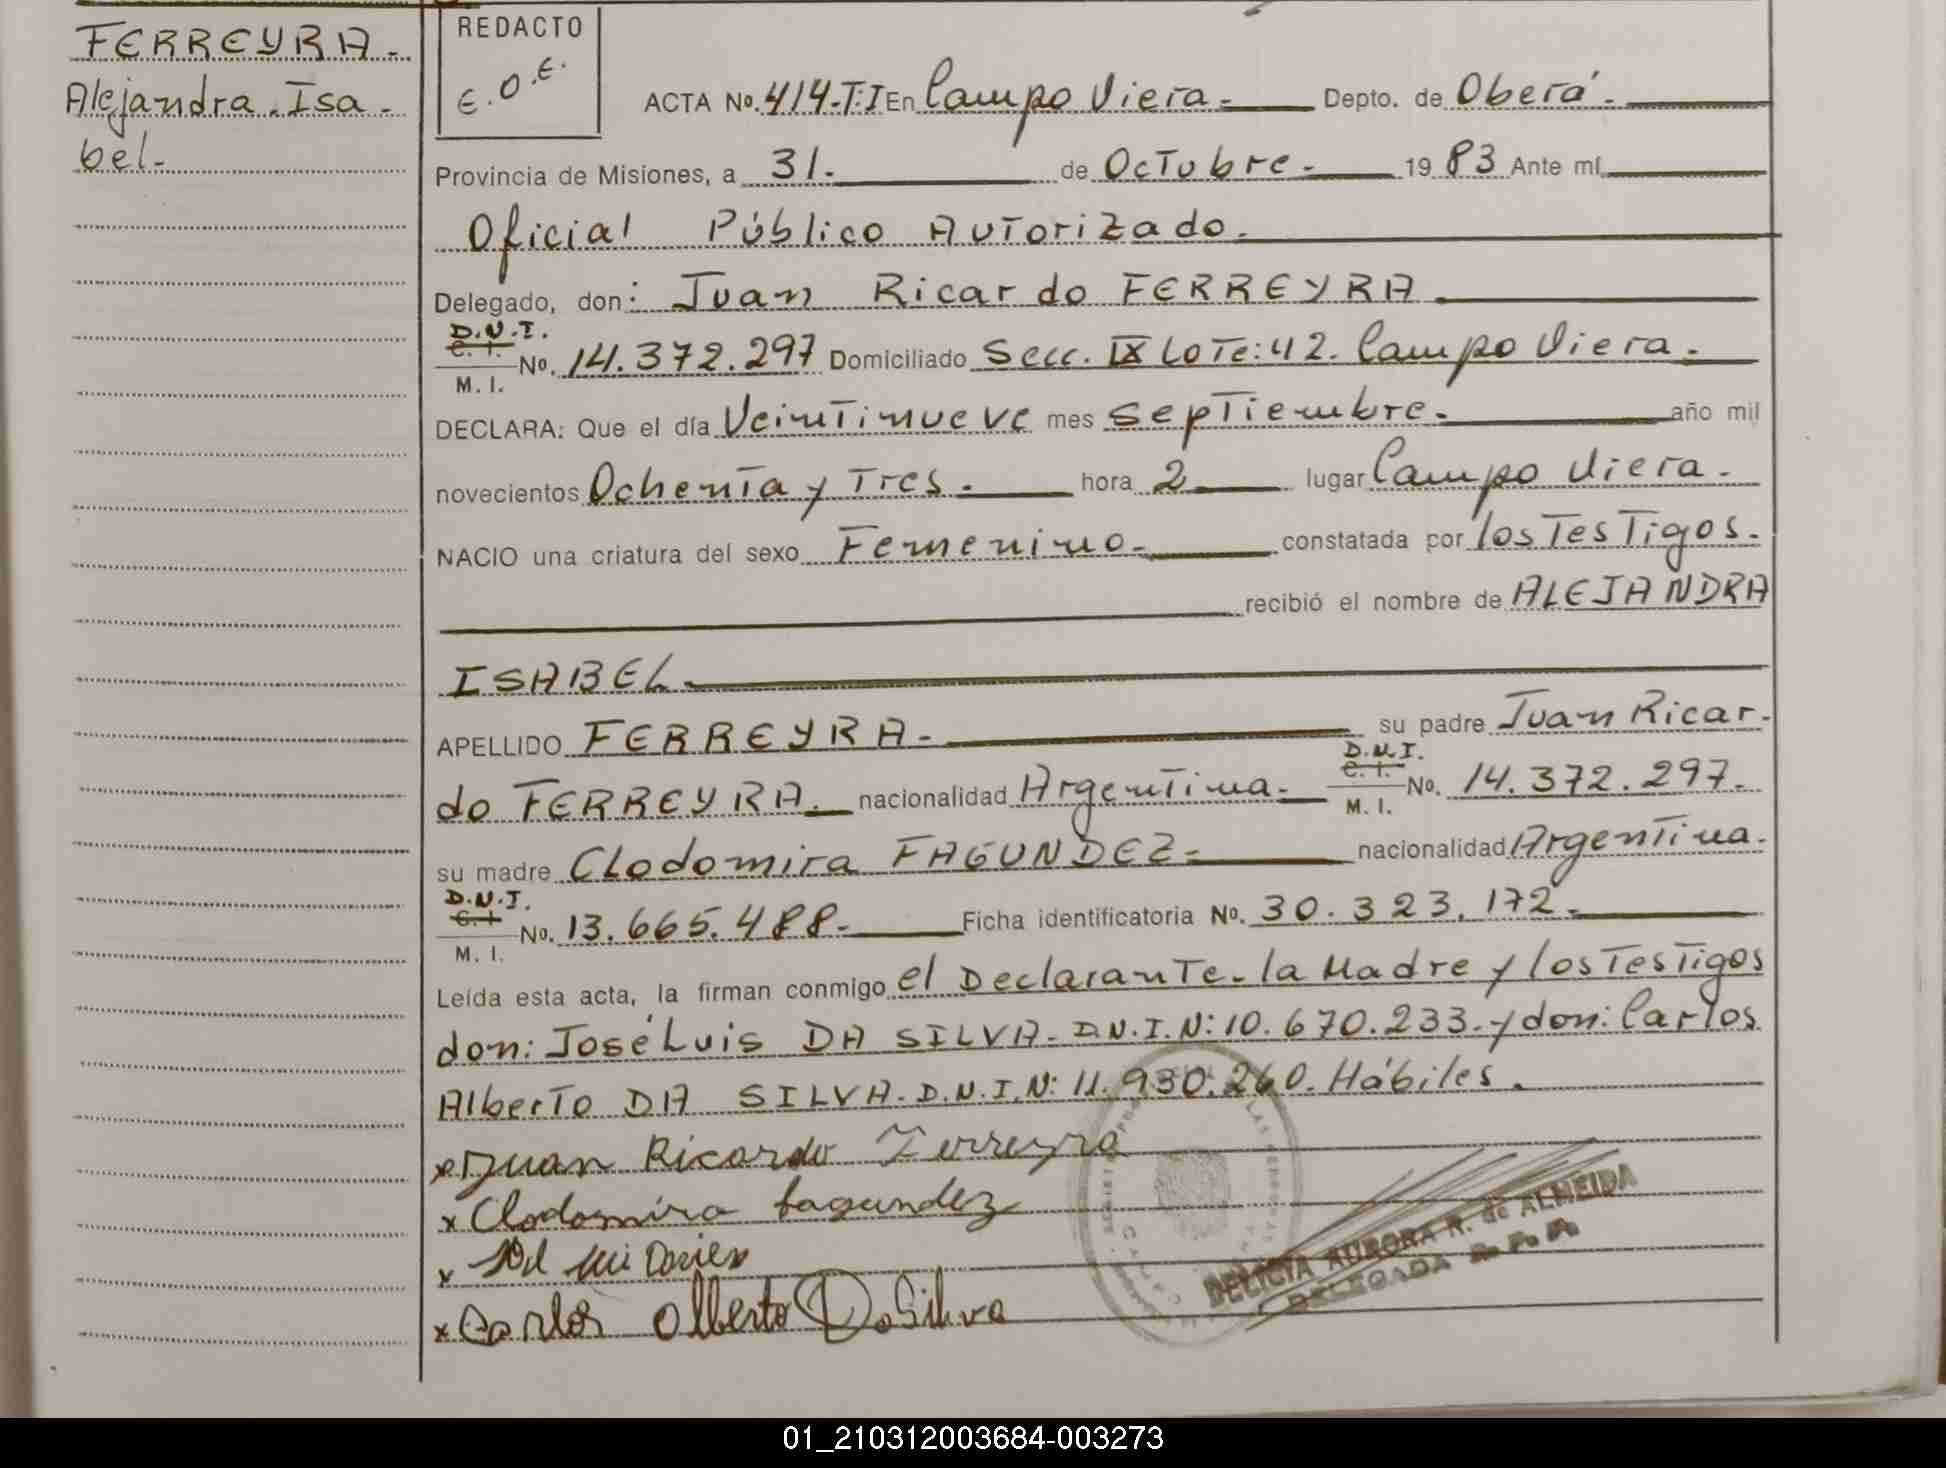 FERREYRA.-
Alejandra. Isa-
bel.-
REDACTO
E.O.E.
ACTA No. 414-T:I En Campo Viera.- Depto. de Oberá.-
Provincia de Misiones, a 31.- de Octubre.- 1983 Ante mí,
Oficial Público Autorizado.-
Delegado, don: Juan Ricardo FERREYRA
D.N.I.
C. I.
M. I. No. 14.372.297 Domiciliado Secc. IX Lote: 42. Campo Viera.-
DECLARA: Que el día Veintinueve mes Septiembre.- año mil
novecientos Ochenta y Tres.- hora 2 lugar Campo Viera.-
NACIO una criatura del sexo Femenino.- constatada por los Testigos.-
recibió el nombre de ALEJANDRA
ISABEL.-
APELLIDO FERREYRA.- su padre Juan Ricar-
do FERREYRA.- nacionalidad Argentina.- D.N.I. C. I. M. I. No. 14.372.297.-
su madre Clodomira FAGUNDEZ.- nacionalidad Argentina.-
D.N.I.
C. I
M. I. No. 13.665.488.- Ficha identificatoria No. 30.323.172.-
Leída esta acta, la firman conmigo el Declarante.- la Madre y los Testigos
don: José Luis DA SILVA.- D.N.I.N: 10.670.233.- y don: Carlos
Alberto DA SILVA.- D.N.I.N: 11.930.260. Hábiles.
x Juan Ricardo Ferreyra
x Clodomira fagundez
x
x Carlos Alberto Da Silva
DELICIA AURORA R. de ALMEIDA
DELEGADA R. P. A
01_210312003684-003273